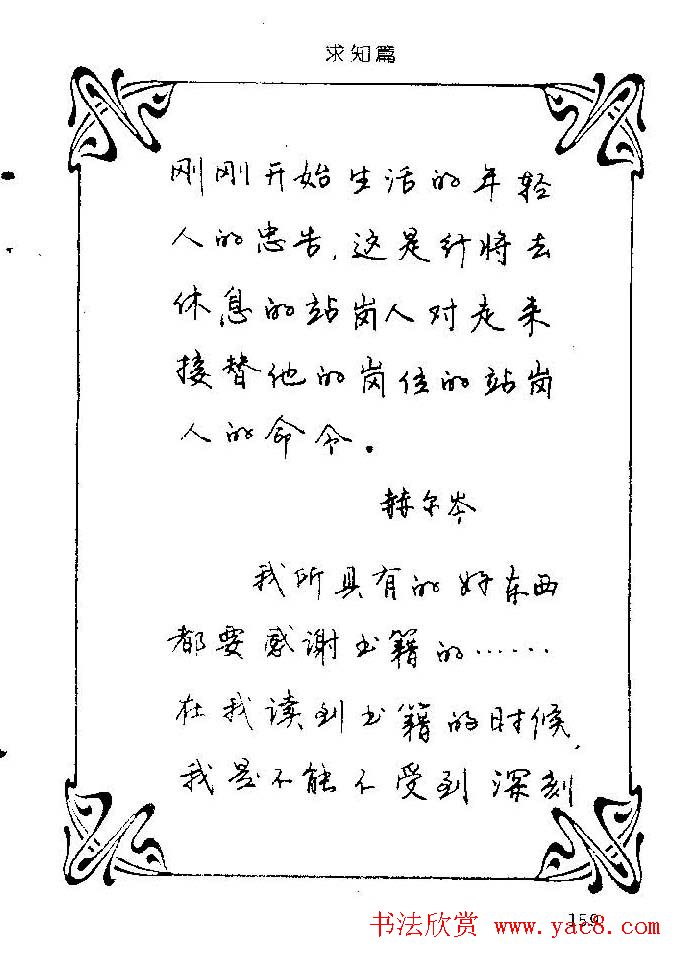 求知篇
刚刚开始生活的年轻
人的忠告,这是行将去
休息的站岗人对走来
接替他的岗位的站岗
人的命令。
赫尔岑
我所具有的好东西
都要感谢书籍的……
在我读到书籍的时候,
我是不能不受到深刻
159
书法欣赏 www.yac8.com